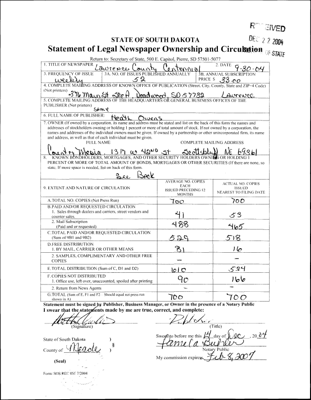 RECEIVED
DEC 27 2004
STATE OF SOUTH DAKOTA
Statement of Legal Newspaper Ownership and Circulation
Return to: Secretary of State, 500 E. Capitol, Pierre, SD 57501-5077
1. TITLE OF NEWSPAPER Lawrence County Centennial 2. DATE 9-30-04
3. FREQUENCY OF ISSUE weekly 3A. NO. OF ISSUES PUBLISHED ANNUALLY 52 3B. ANNUAL SUBSCRIPTION PRICE $ 33.00
4. COMPLETE MAILING ADDRESS OF KNOWN OFFICE OF PUBLICATION (Street, City, County, State and ZIP+4 Code) (Not printers)
Deadwood, SD 57732 Lawrence
5. COMPLETE MAILING ADDRESS OF THE HEADQUARTERS OF GENERAL BUSINESS OFFICES OF THE PUBLISHER (Not printers)
same
6. FULL NAME OF PUBLISHER:
Owens
7. OWNER (If owned by a corporation, its name and address must be stated and list on the back of this form the names and addresses of stockholders owning or holding 1 percent or more of total amount of stock. If not owned by a corporation, the names and addresses of the individual owners must be given. If owned by a partnership or other unincorporated firm, its name and address, as well as that of each individual must be given.
FULL NAME COMPLETE MAILING ADDRESS
Scottsbluff NE 69361
8. KNOWN BONDHOLDERS, MORTGAGES, AND OTHER SECURITY HOLDERS OWNED OR HOLDING 1 PERCENT OR MORE OF TOTAL AMOUNT OF BONDS, MORTGAGES OR OTHER SECURITIES (If there are none, so state. If more space is needed, list on back of this form.
See Back
9. EXTENT AND NATURE OF CIRCULATION
AVERAGE NO. COPIES EACH ISSUED PRECEEDING 12 MONTHS
ACTUAL NO. COPIES OF SINGLE ISSUED NEAREST TO FILING DATE
A. TOTAL NO. COPIES (Net Press Run) 700 700
B. PAID AND/OR REQUESTED CIRCULATION
1. Sales through dealers and carriers, street vendors and counter sales. 41 53
2. Mail Subscription (Paid and or requested) 488 465
C. TOTAL PAID AND/OR REQUESTED CIRCULATION (Sum of 9B1 and 9B2) 529 518
D. FREE DISTRIBUTION
1. BY MAIL, CARRIER OR OTHER MEANS 81 16
2. SAMPLES, COMPLIMENTARY AND OTHER FREE COPIES - -
E. TOTAL DISTRIBUTION (Sum of C, D1 and D2) 610 534
F. COPIES NOT DISTRIBUTED
1. Office use, left over, unaccounted, spoiled after printing 90 166
2. Return from News Agents - -
G. TOTAL (Sum of E, F1 and F2. Should equal net press run shown in A) 700 700
Statement must be signed by Publisher, Business Manager, or Owner in the presence of a Notary Public
I swear that the statements made by me are true, correct, and complete:
(Signature) (Title)
State of South Dakota
County of Meade
Sworn to before me this day of Dec 2004
Pamela
Notary Public
(Seal)
My commission expires Feb 8, 2007